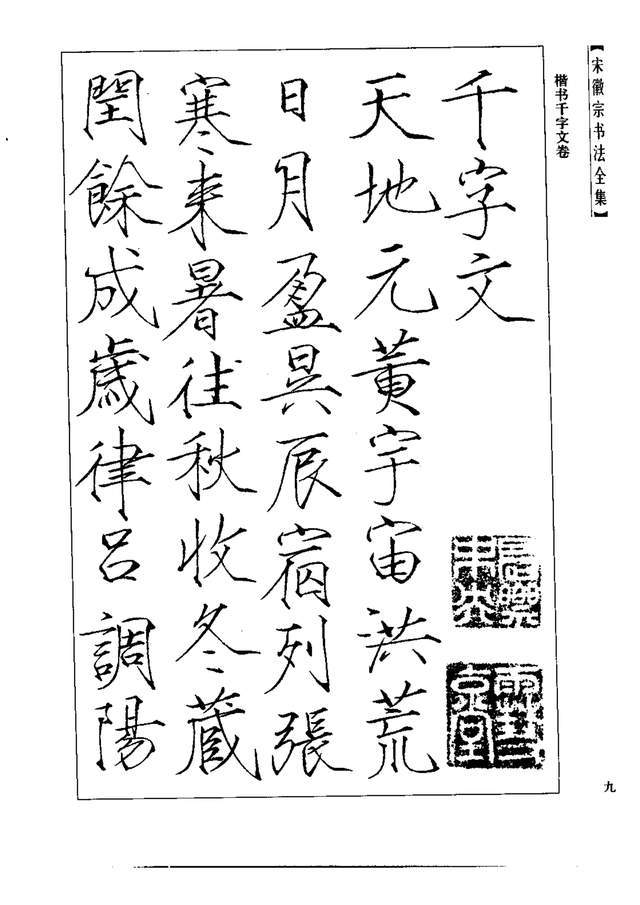 【宋徽宗书法全集】
楷书千字文卷
千字文
天地元黄宇宙洪荒
日月盈昃辰宿列張
寒来暑往秋收冬蔵
閏餘成歲律呂調陽
九